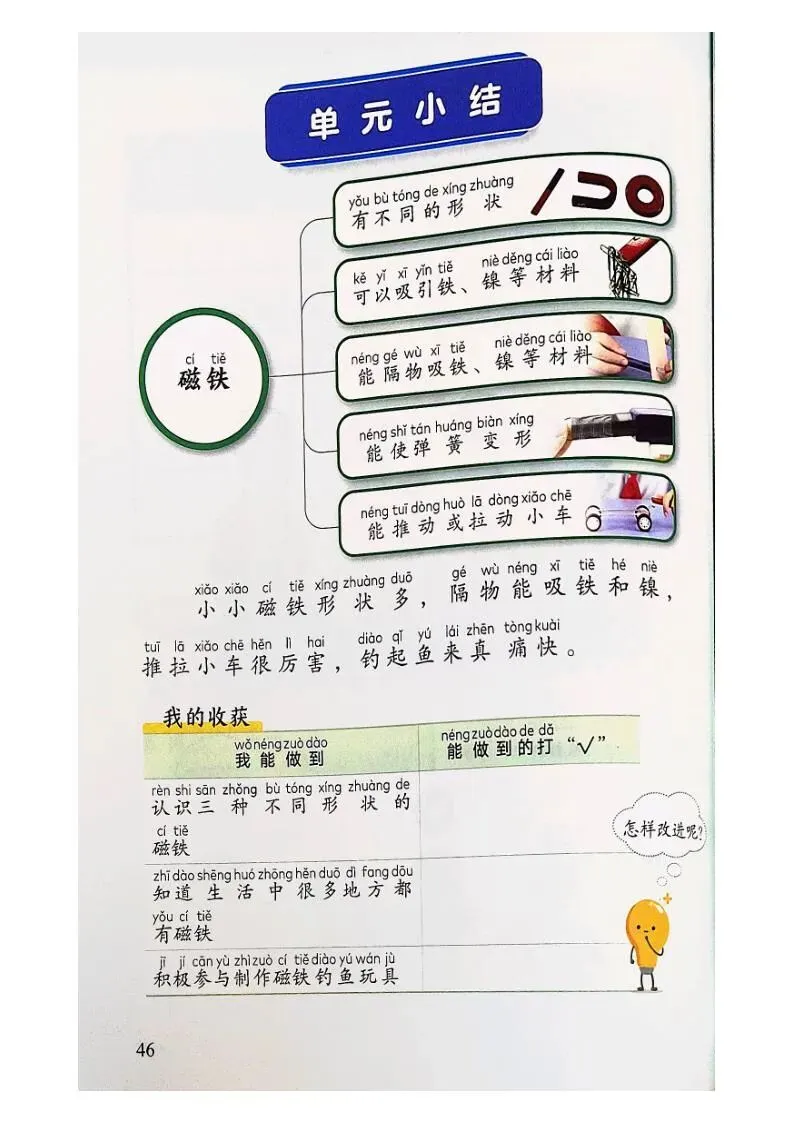 单元小结
yǒu bù tóng de xíng zhuàng
有不同的形状
kě yǐ xī yǐn tiě niè děng cái liào
可以吸引铁、镍等材料
cí tiě
磁铁
néng gé wù xī tiě niè děng cái liào
能隔物吸铁、镍等材料
néng shǐ tán huáng biàn xíng
能使弹簧变形
néng tuī dòng huò lā dòng xiǎo chē
能推动或拉动小车
xiǎo xiǎo cí tiě xíng zhuàng duō gé wù néng xī tiě hé niè
小小磁铁形状多，隔物能吸铁和镍，
tuī lā xiǎo chē hěn lì hai diào qǐ yú lái zhēn tòng kuài
推拉小车很厉害，钓起鱼来真痛快。
我的收获
wǒ néng zuò dào
我能做到
néng zuò dào de dǎ
能做到的打“√”
rèn shi sān zhǒng bù tóng xíng zhuàng de
认识三种不同形状的
cí tiě
磁铁
zhī dào shēng huó zhōng hěn duō dì fang dōu
知道生活中很多地方都
yǒu cí tiě
有磁铁
jī jí cān yù zhì zuò cí tiě diào yú wán jù
积极参与制作磁铁钓鱼玩具
怎样改进呢？
46